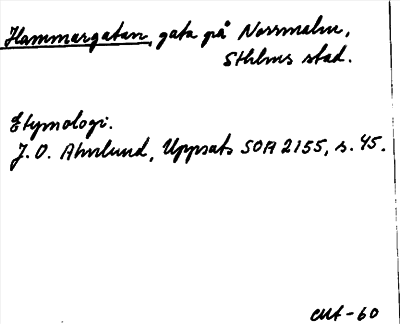 Hammargatan, gata på Norrmalm,
Sthlms stad.
Etymologi.
J. O. Almlund, Uppsats SOA 2155, s. 45.
cut-60